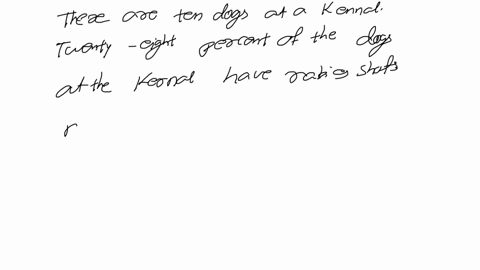 These are ten dogs at a Kennal.
Twenty-eight percent of the dogs
at the Kernal have rabies shots
r